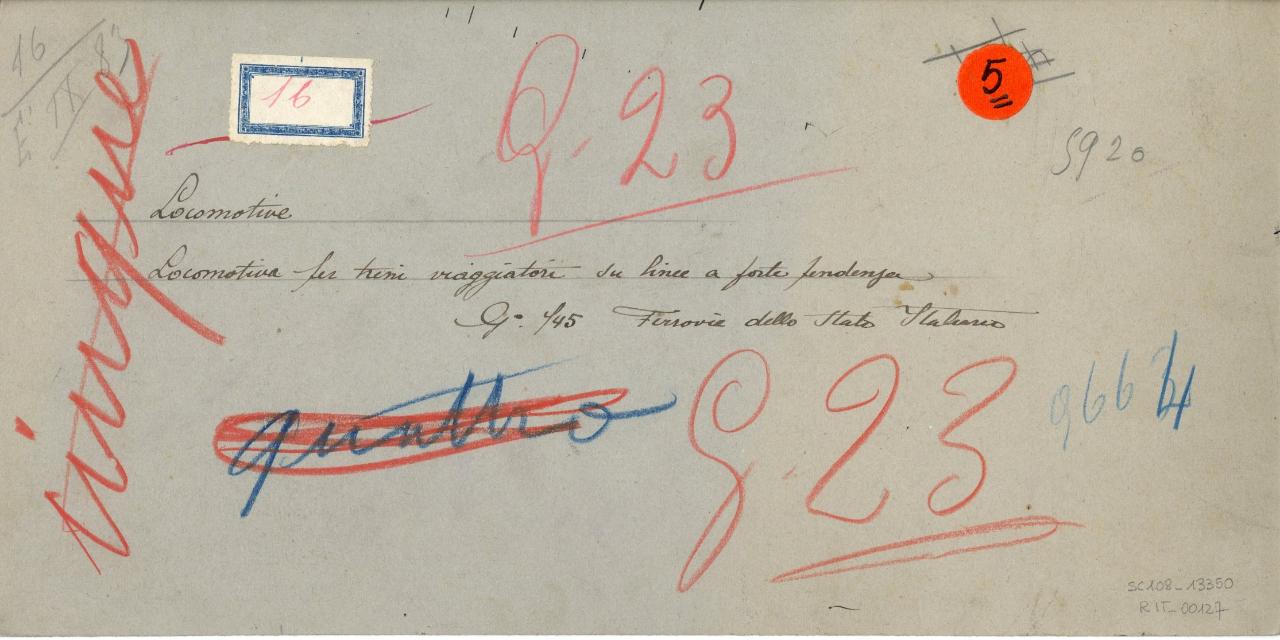 16
IX
16
G. 23
5
5920
cinque
Locomotive
Locomotiva per treni viaggiatori su linee a forte pendenza
Gr. /45 Ferrovie dello Stato Italiano
quattro
G. 23
9664
SC108_13350
RIT_00127